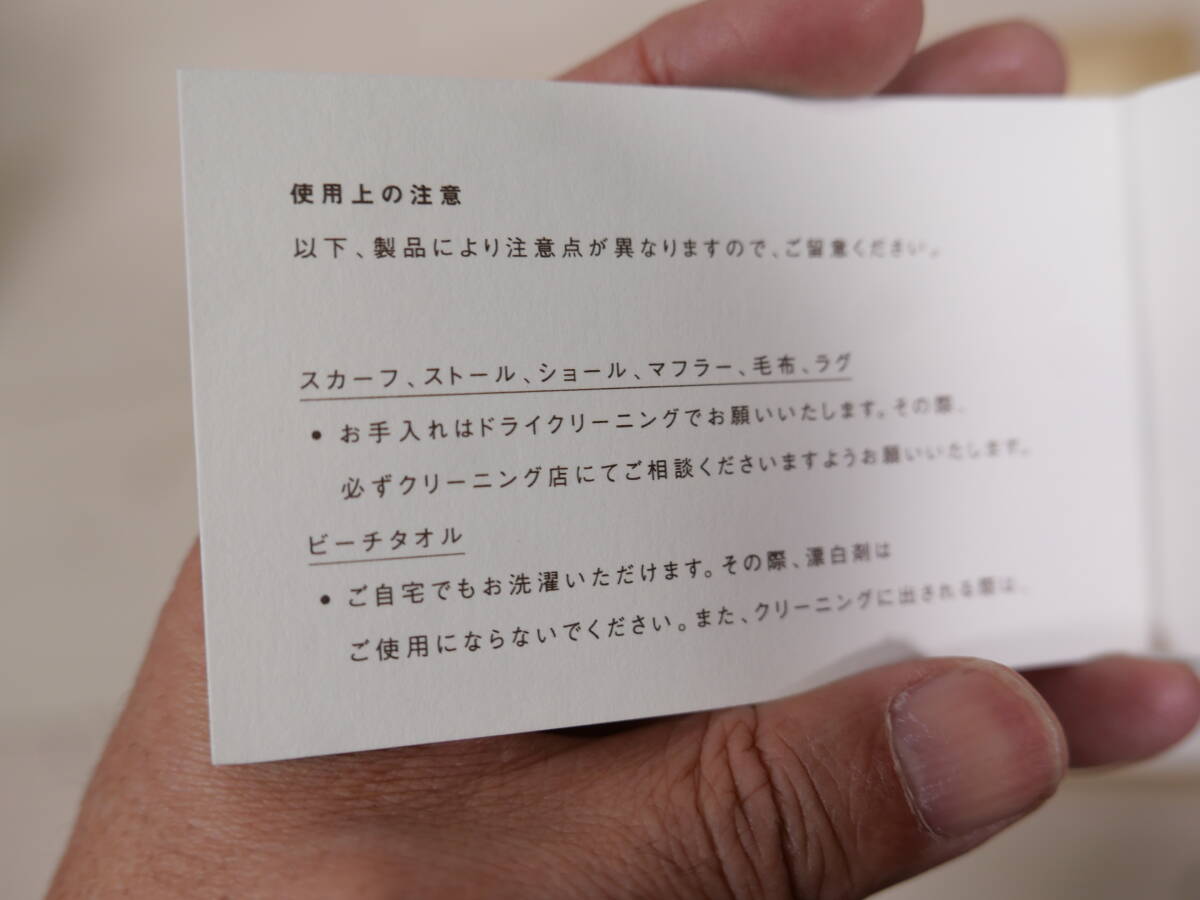 使用上の注意
以下、製品により注意点が異なりますので、ご留意ください。
スカーフ、ストール、ショール、マフラー、毛布、ラグ
• お手入れはドライクリーニングでお願いいたします。その際、
必ずクリーニング店にてご相談くださいますようお願いいたします。
ビーチタオル
• ご自宅でもお洗濯いただけます。その際、漂白剤は
ご使用にならないでください。また、クリーニングに出される際は、